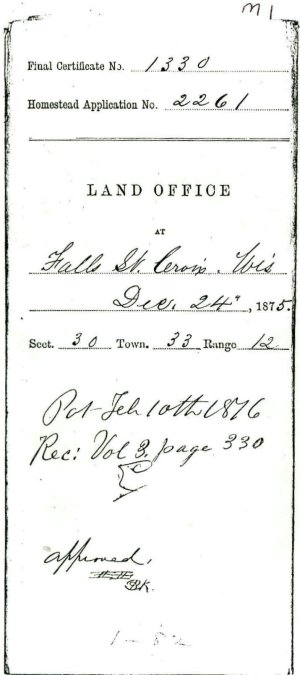 M 1
Final Certificate No. 1330
Homestead Application No. 2261
LAND OFFICE
AT
Falls St. Croix. Wis
Dec. 24", 1875.
Sect. 30 Town. 33 Range 12
Pat Feb 10th 1876
Rec: Vol 3. page 330
approved,